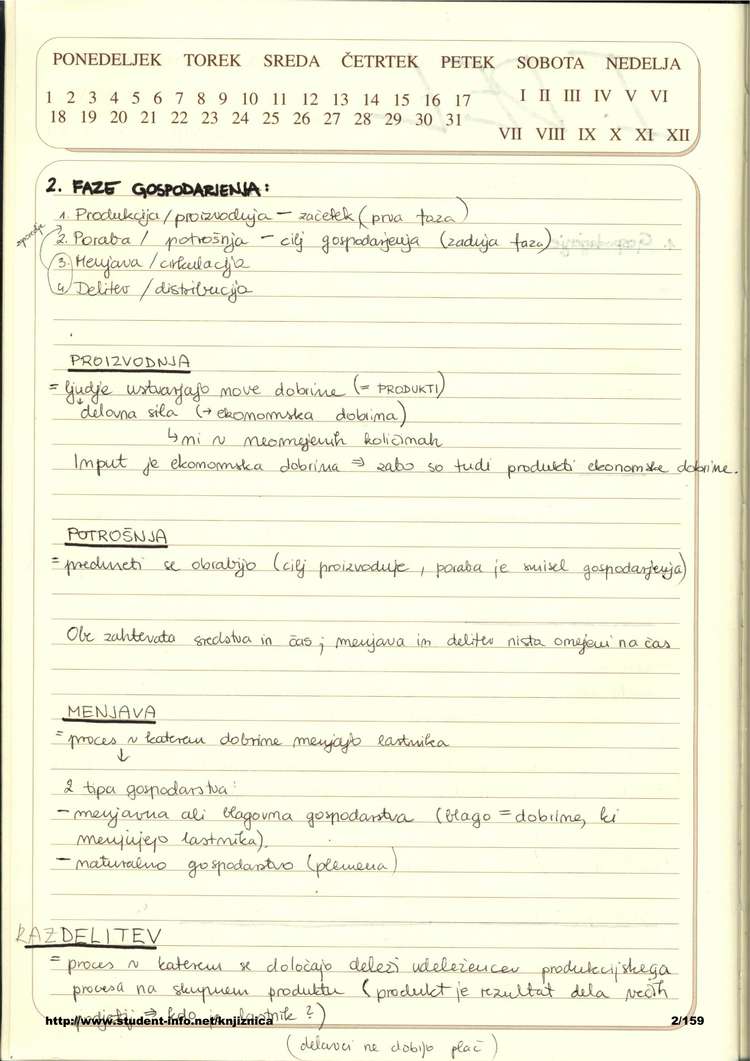 PONEDELJEK TOREK SREDA ČETRTEK PETEK SOBOTA NEDELJA
1 2 3 4 5 6 7 8 9 10 11 12 13 14 15 16 17 I II III IV V VI
18 19 20 21 22 23 24 25 26 27 28 29 30 31 VII VIII IX X XI XII
2. FAZE GOSPODARJENJA:
1. Produkcija / proizvodnja – začetek (prva faza)
2. Poraba / potrošnja – cilj gospodarjenja (zadnja faza)
3. Menjava / cirkulacija
4. Delitev / distribucija
PROIZVODNJA
= ljudje ustvarjajo nove dobrine (= PRODUKTI)
↓ delovna sila (→ ekonomska dobrina)
↳ ni v neomejenih količinah
Input je ekonomska dobrina ⇒ zato so tudi produkti ekonomske dobrine.
POTROŠNJA
= predmeti se obrabijo (cilj proizvodnje, poraba je smisel gospodarjenja)
Obe zahtevata sredstva in čas; menjava in delitev nista omejeni na čas
MENJAVA
= proces v katerem dobrine menjajo lastnika
↓
2 tipa gospodarstva:
– menjavna ali blagovna gospodarstva (blago = dobrine, ki
menjujejo lastnika).
– naturalno gospodarstvo (plemena)
RAZDELITEV
= proces v katerem se določajo deleži udeležencev produkcijskega
procesa na skupnem produktu (produkt je rezultat dela večih
podjetij ⇒ kdo je lastnik?)
http://www.student-info.net/knjiznica 2/159
(delavci ne dobijo plač)